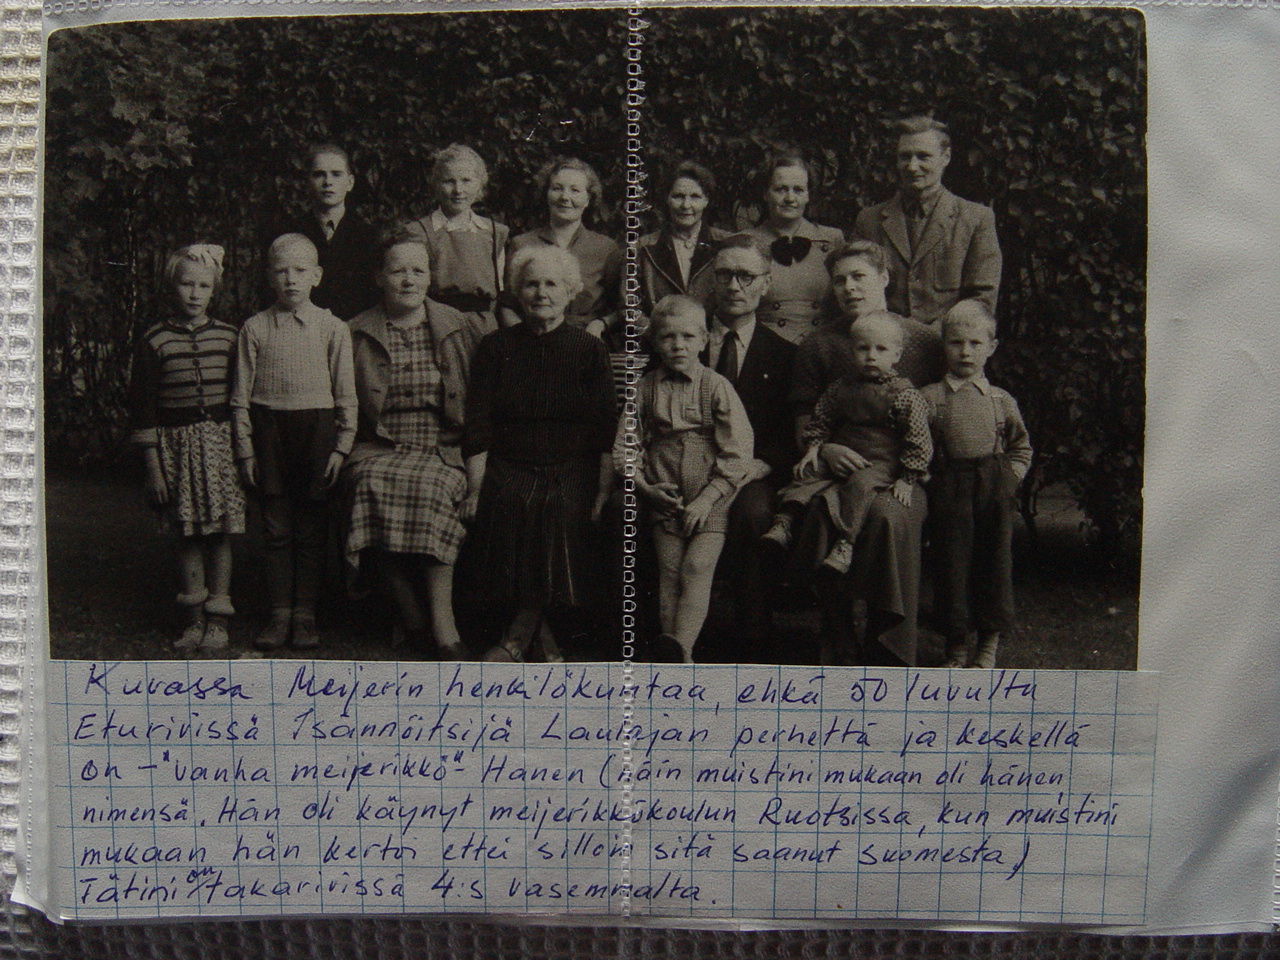 Kuvassa Meijerin henkilökuntaa, ehkä 50 luvulta
Eturivissä Isännöitsijä Laulajan perhettä ja keskellä
on - "vanha meijerikkö" - Hanen (näin muistini mukaan oli hänen
nimensä. Hän oli käynyt meijerikkökoulun Ruotsissa, kun muistini
mukaan hän kertoi ettei silloin sitä saanut suomesta)
Tätini on takarivissä 4:s vasemmalta.